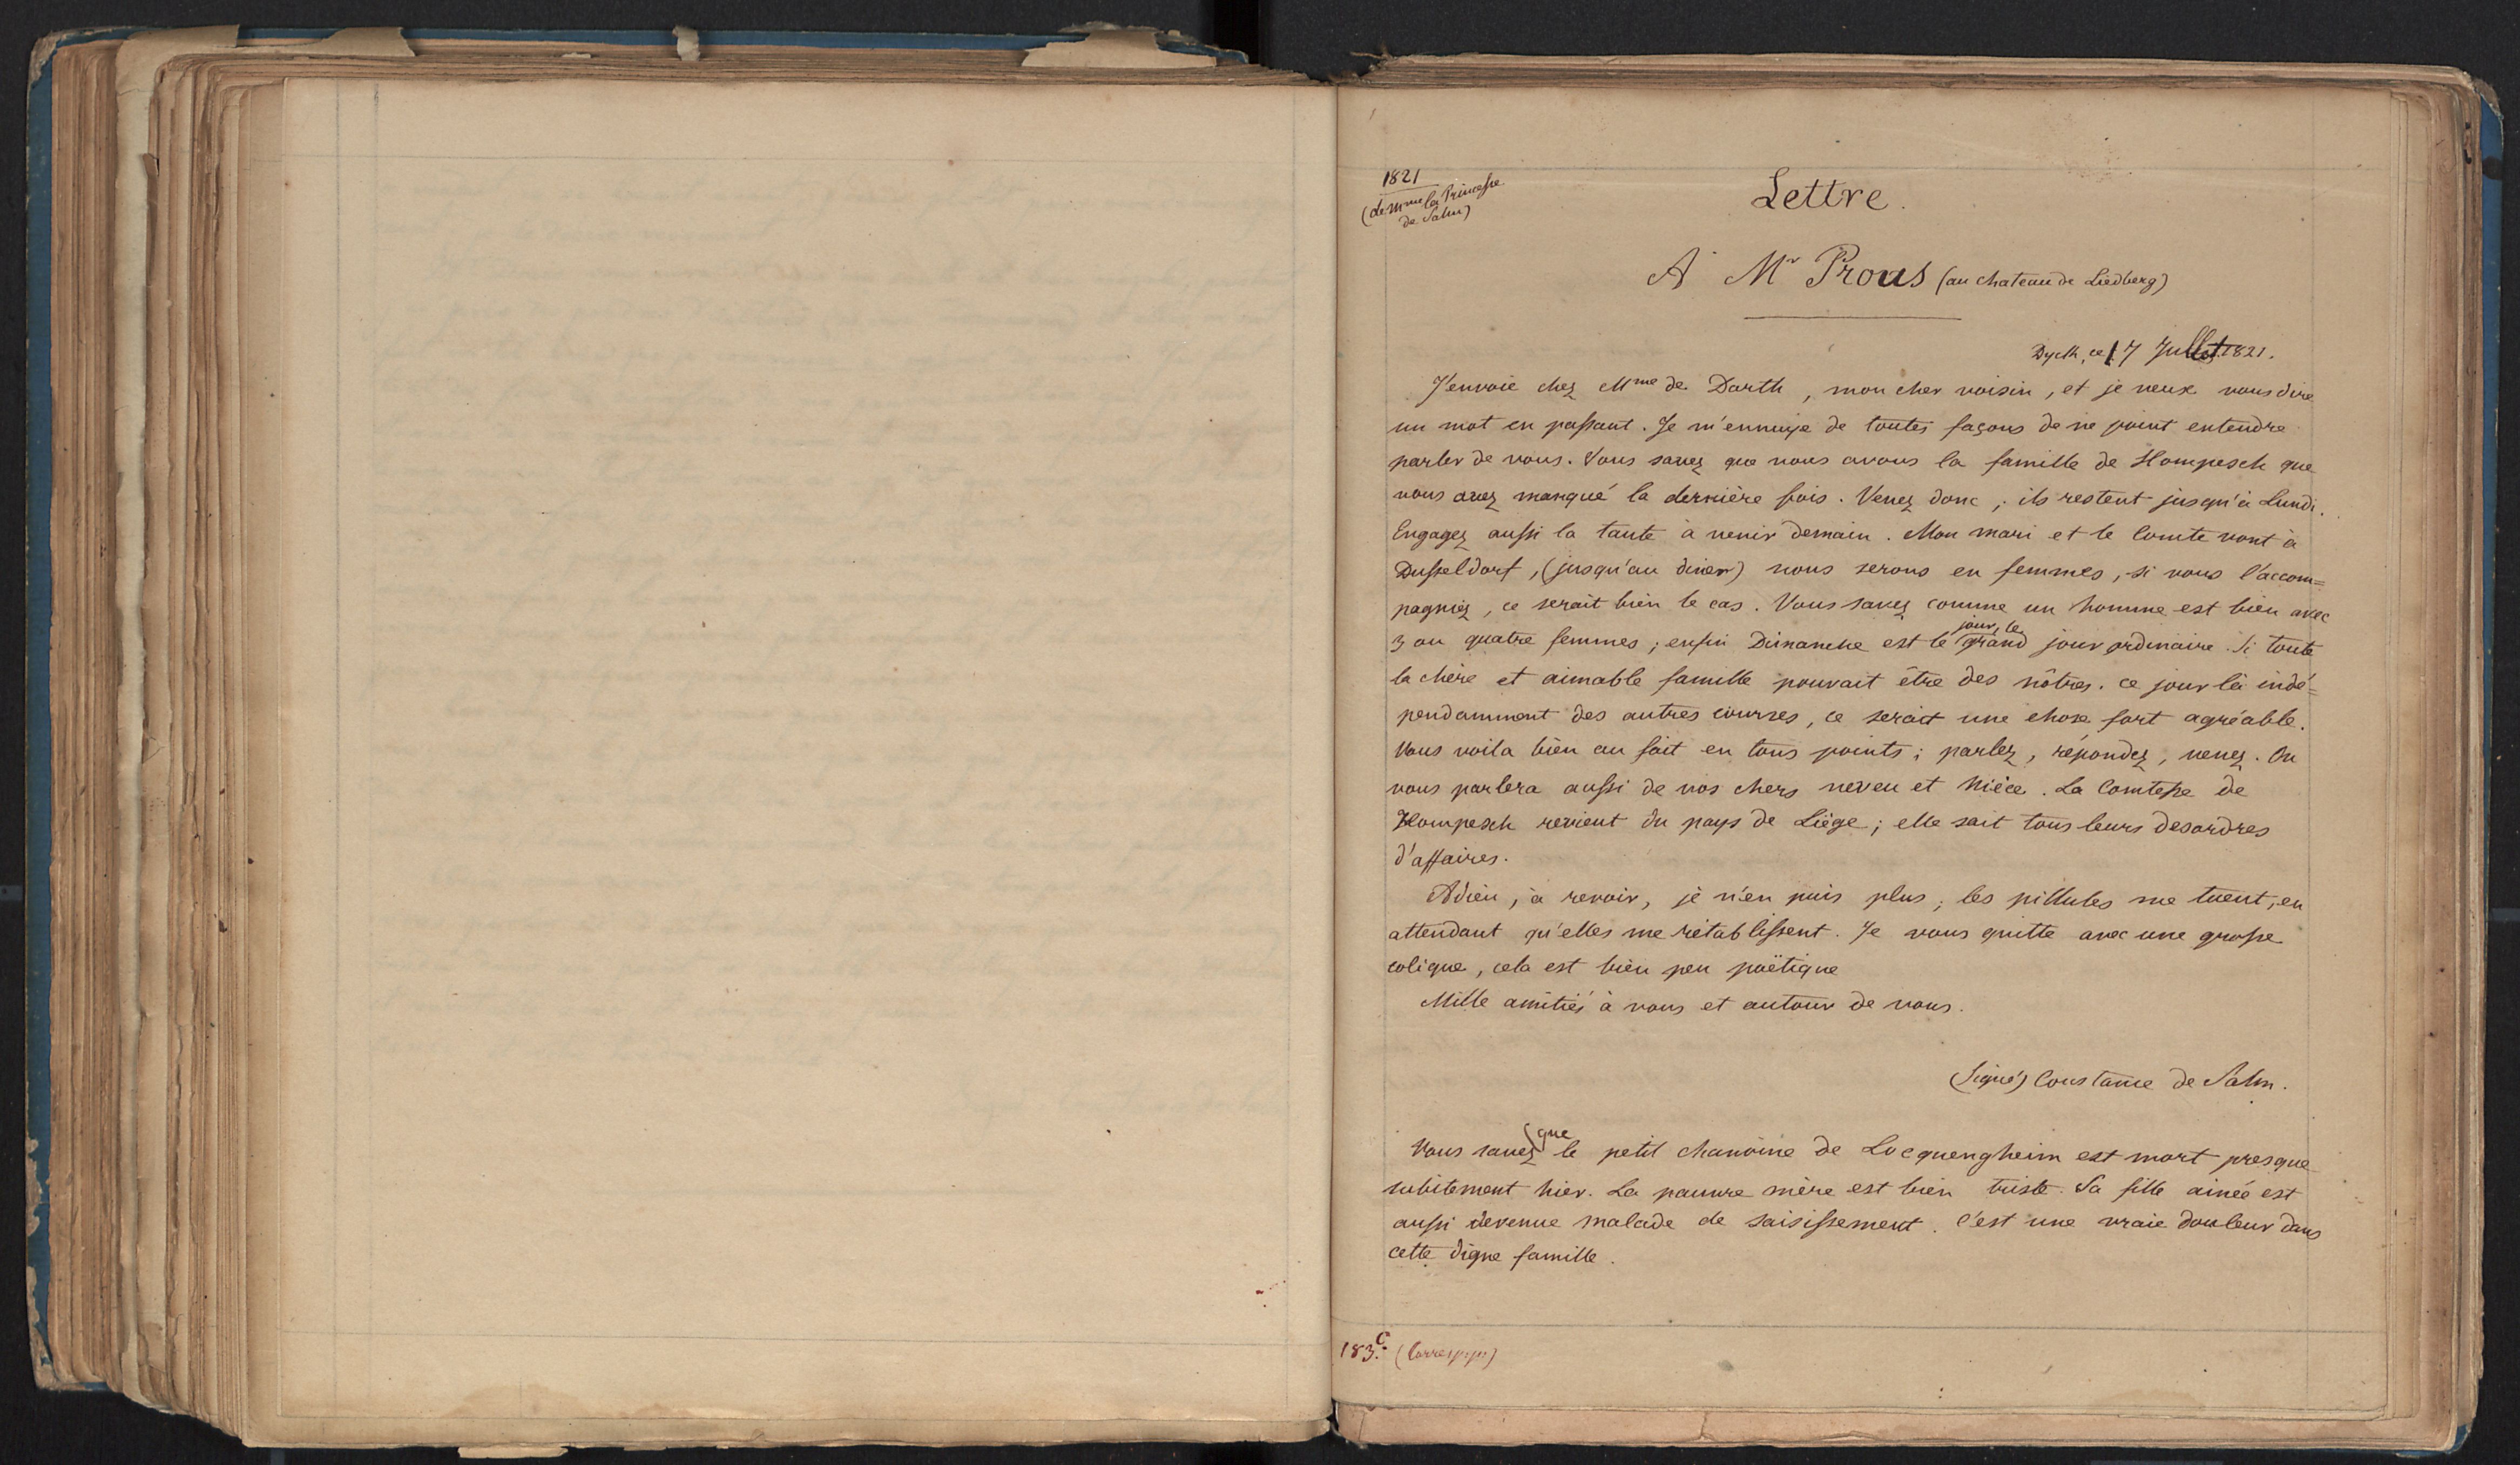 1821
(de Mme la Princesse
de Salm)
Lettre.
A Mr Prous (au chateau de Liedberg)
Dyck, ce 17 Juillet 1821.
J'envoie chez Mme de Darth, mon cher voisin, et je veux vous dire
un mot en passant. Je m'ennuye de toutes façons de ne point entendre
parler de vous. Vous savez que nous avons la famille de Hompesch que
vous avez manqué la dernière fois. Venez donc ; ils restent jusqu'à Lundi.
Engagez aussi la tante à venir demain. Mon mari et le Comte vont à
Dusseldorf, (jusqu'au diner) nous serons en femmes, si vous l'accom=
pagniez, ce serait bien le cas. Vous savez comme un homme est bien avec
3 ou quatre femmes ; enfin Dimanche est le jour, le grand jour ordinaire. Si toute
la chère et aimable famille pouvait être des nôtres. ce jour là indé=
pendamment des autres courses, ce serait une chose fort agréable.
Vous voila bien au fait en tous points ; parlez, répondez, venez. On
vous parlera aussi de nos chers neveu et nièce. La Comtesse de
Hompesch revient du pays de Liège ; elle sait tous leurs desordres
d'affaires.
Adieu, à revoir, je n'en puis plus ; les pillules me tuent, en
attendant qu'elles me rétablissent. Je vous quitte avec une grosse
colique, cela est bien peu poëtique
Mille amitiés à vous et autour de vous.
(Signé) Constance de Salm.
Vous savez que le petit chanoine de Locquengheim est mort presque
subitement hier. La pauvre mère est bien triste. Sa fille ainée est
aussi devenue malade de saisissement. C'est une vraie douleur dans
cette digne famille.
183.c (Corresp.)